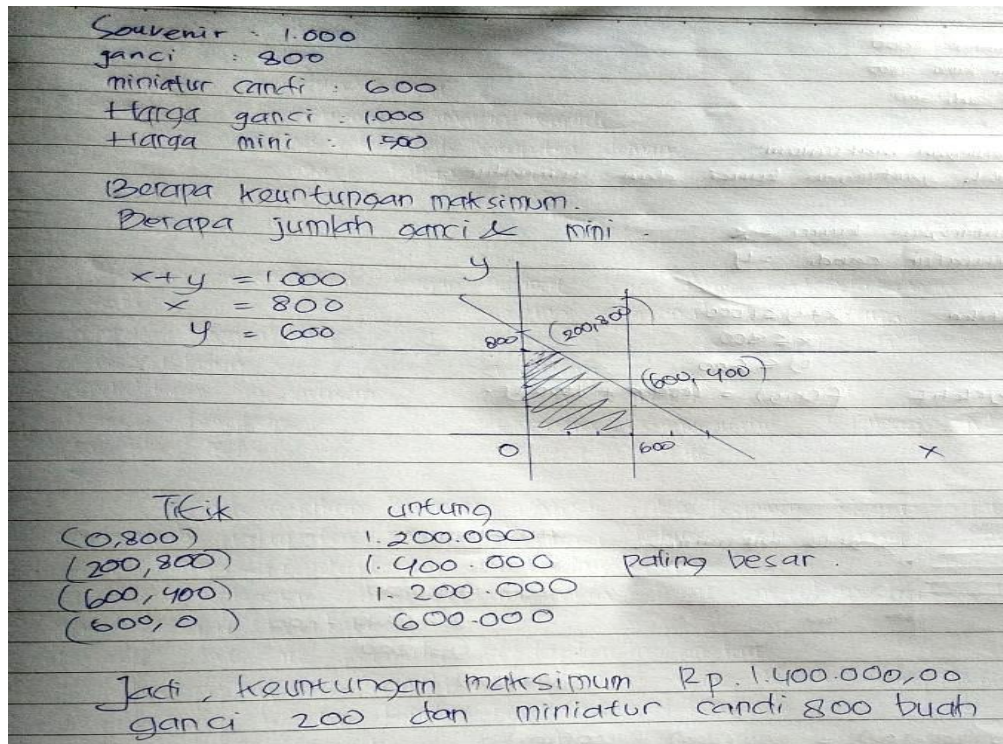 Souvenir : 1.000
ganci : 800
miniatur candi : 600
Harga ganci : 1.000
Harga mini : 1.500
Berapa keuntungan maksimum.
Berapa jumlah ganci & mini.
x + y = 1000
x = 800
y = 600
y
800
(200,800)
(600, 400)
0
600
x
Titik untung
(0,800) 1.200.000
(200,800) 1.400.000 paling besar.
(600,400) 1.200.000
(600,0) 600.000
Jadi, keuntungan maksimum Rp. 1.400.000,00
ganci 200 dan miniatur candi 800 buah